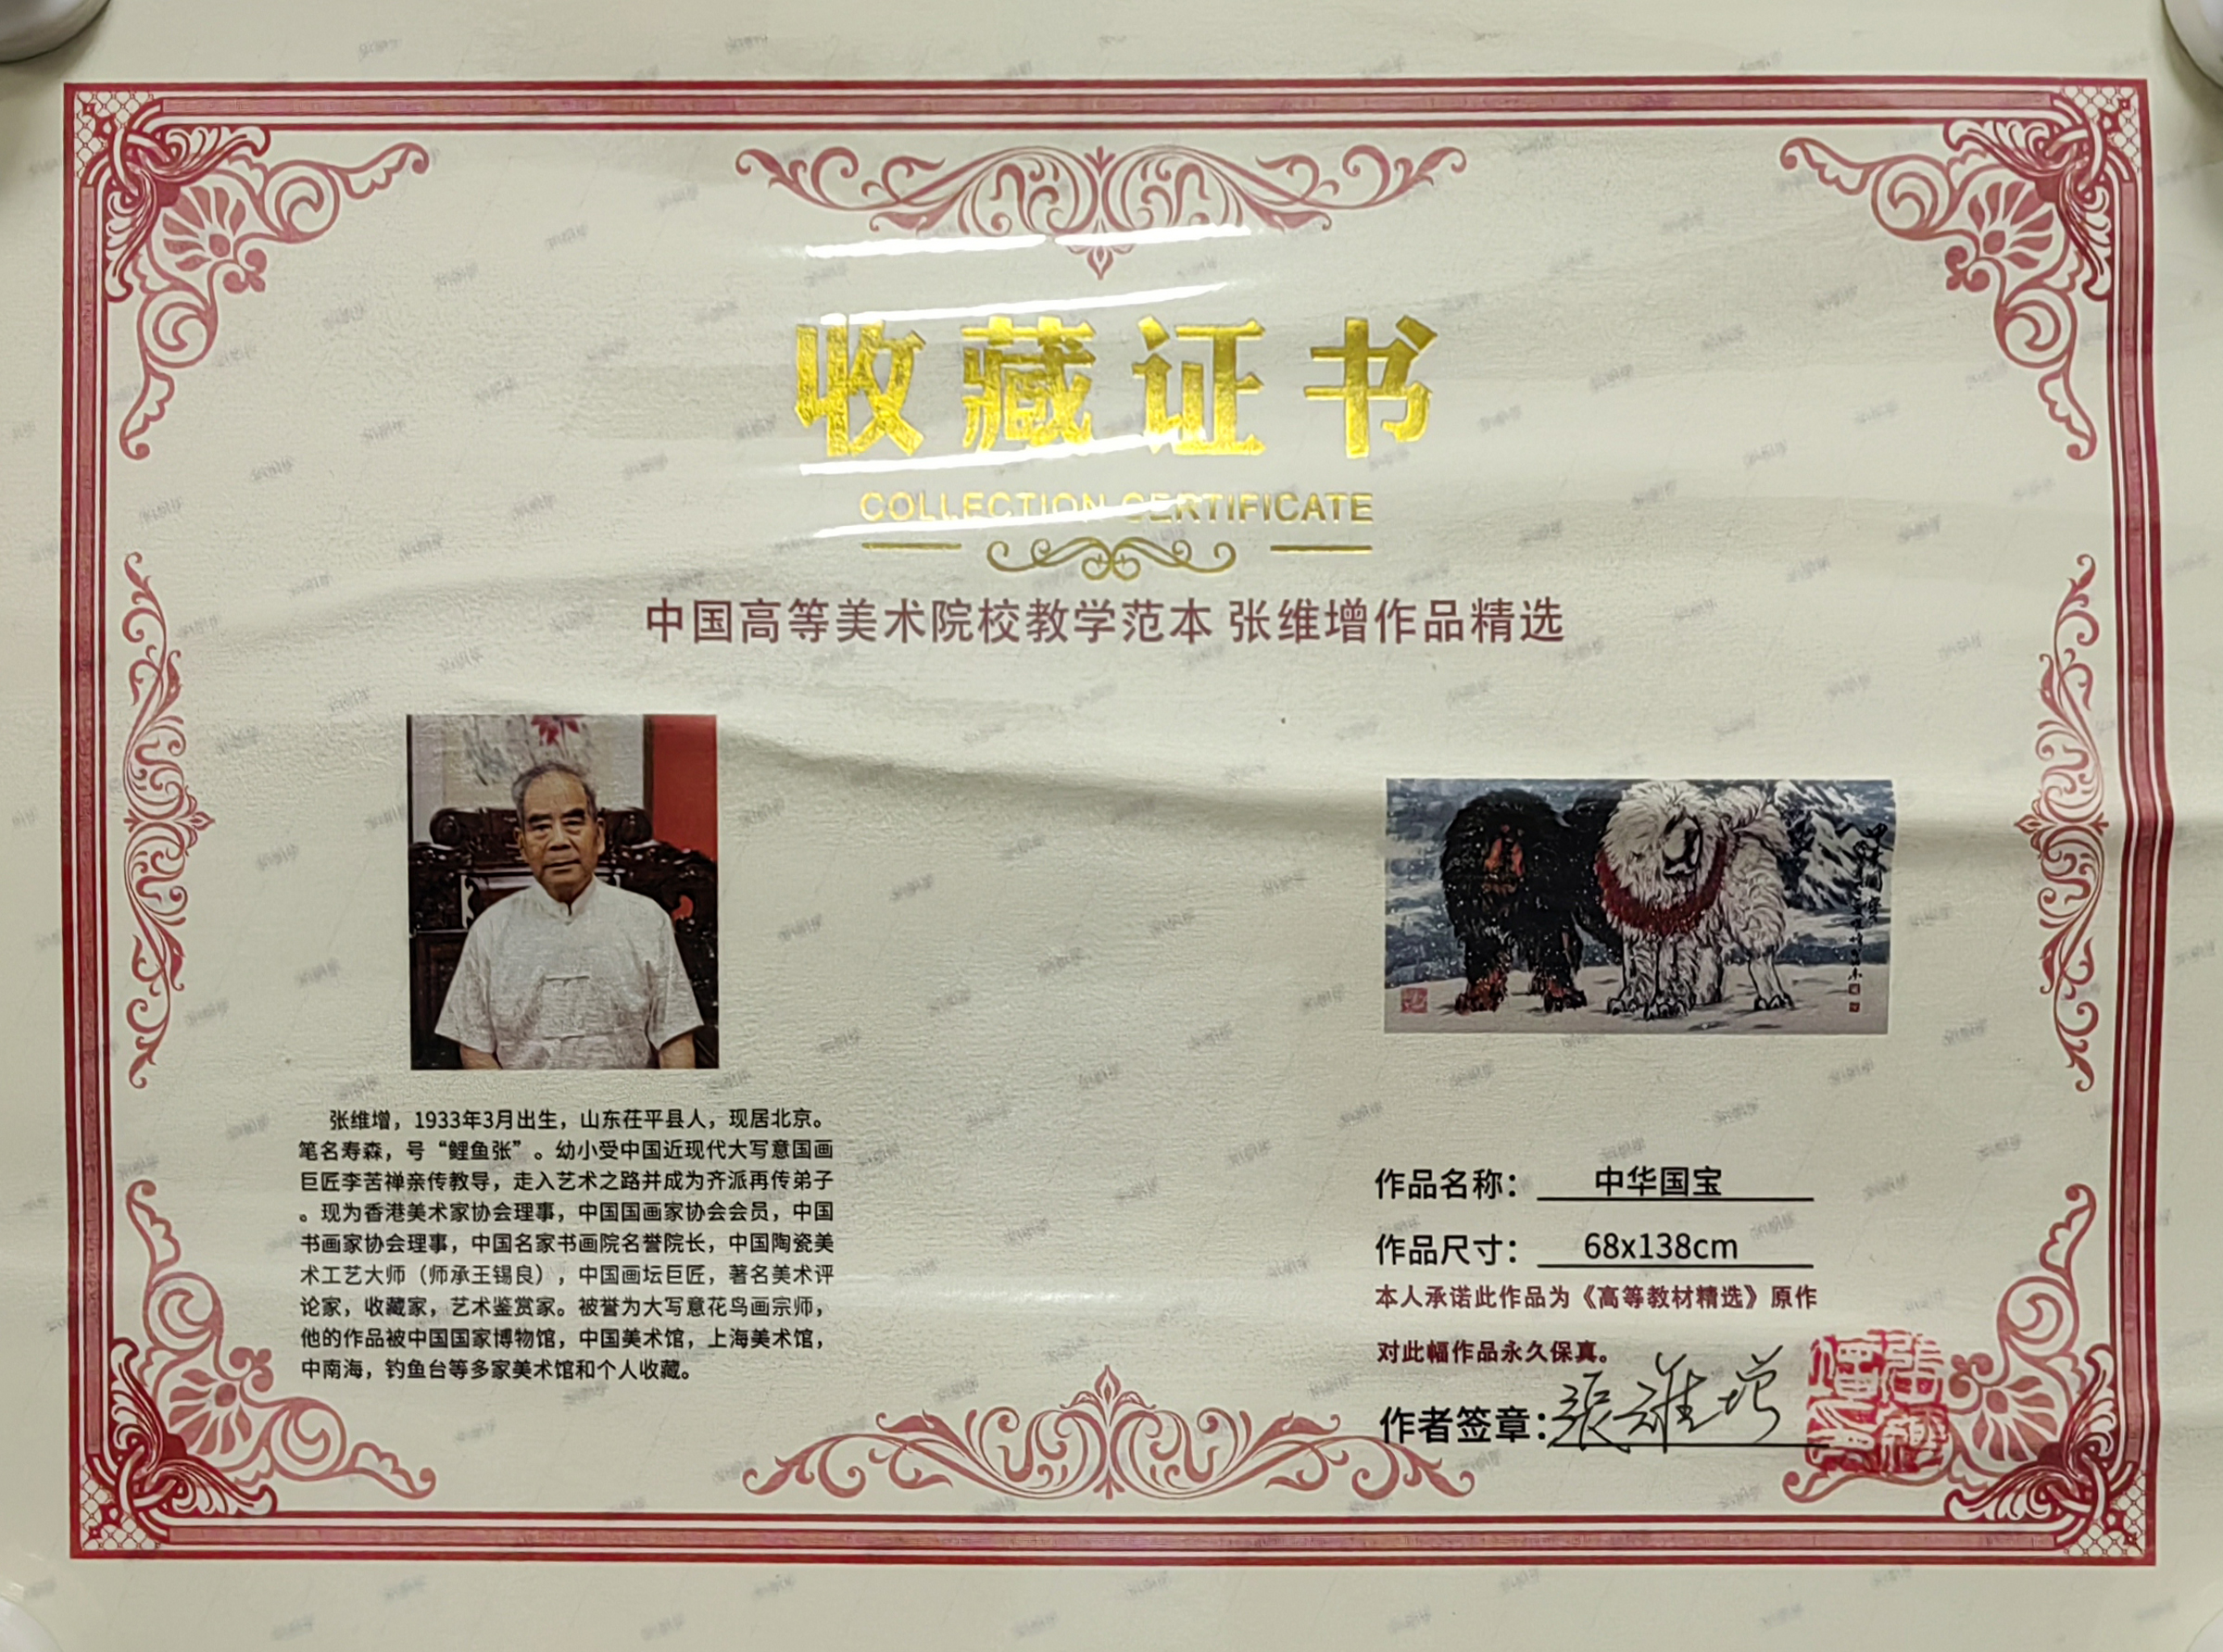 收藏证书
COLLECTION CERTIFICATE
中国高等美术院校教学范本 张维增作品精选
张维增，1933年3月出生，山东茌平县人，现居北京。
笔名寿森，号“鲤鱼张”。幼小受中国近现代大写意国画
巨匠李苦禅亲传教导，走入艺术之路并成为齐派再传弟子
。现为香港美术家协会理事，中国国画家协会会员，中国
书画家协会理事，中国名家书画院名誉院长，中国陶瓷美
术工艺大师（师承王锡良），中国画坛巨匠，著名美术评
论家，收藏家，艺术鉴赏家。被誉为大写意花鸟画宗师，
他的作品被中国国家博物馆，中国美术馆，上海美术馆，
中南海，钓鱼台等多家美术馆和个人收藏。
作品名称： 中华国宝
作品尺寸： 68x138cm
本人承诺此作品为《高等教材精选》原作
对此幅作品永久保真。
作者签章：張維增